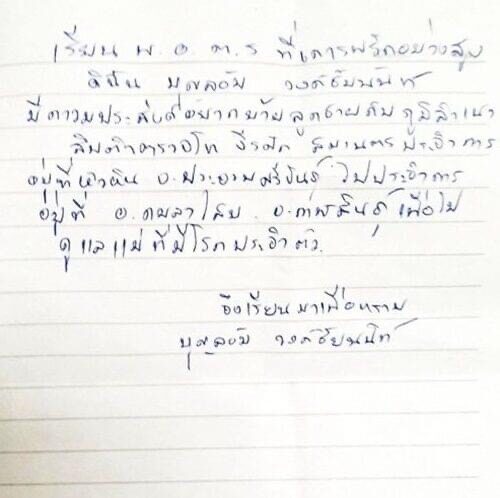 เรียน พ.อ.ต.ร ที่เคารพรักอย่างสูง
ดิฉัน บุญลอัม วงค์ชัยนนท์
มีความประสงค์อยากย้ายลูกชายกลับภูมิลำเนา
สิบตำรวจโท ประจำการ
อยู่ที่หัวหิน จ.ประจวบคีรีขันธ์ ไปประจำการ
อยู่ที่ อ.กมลาไสย จ.กาฬสินธุ์ เพื่อไป
ดูแลแม่ที่มีโรคประจำตัว
จึงเรียนมาเพื่อทราบ
วงค์ชัยนนท์